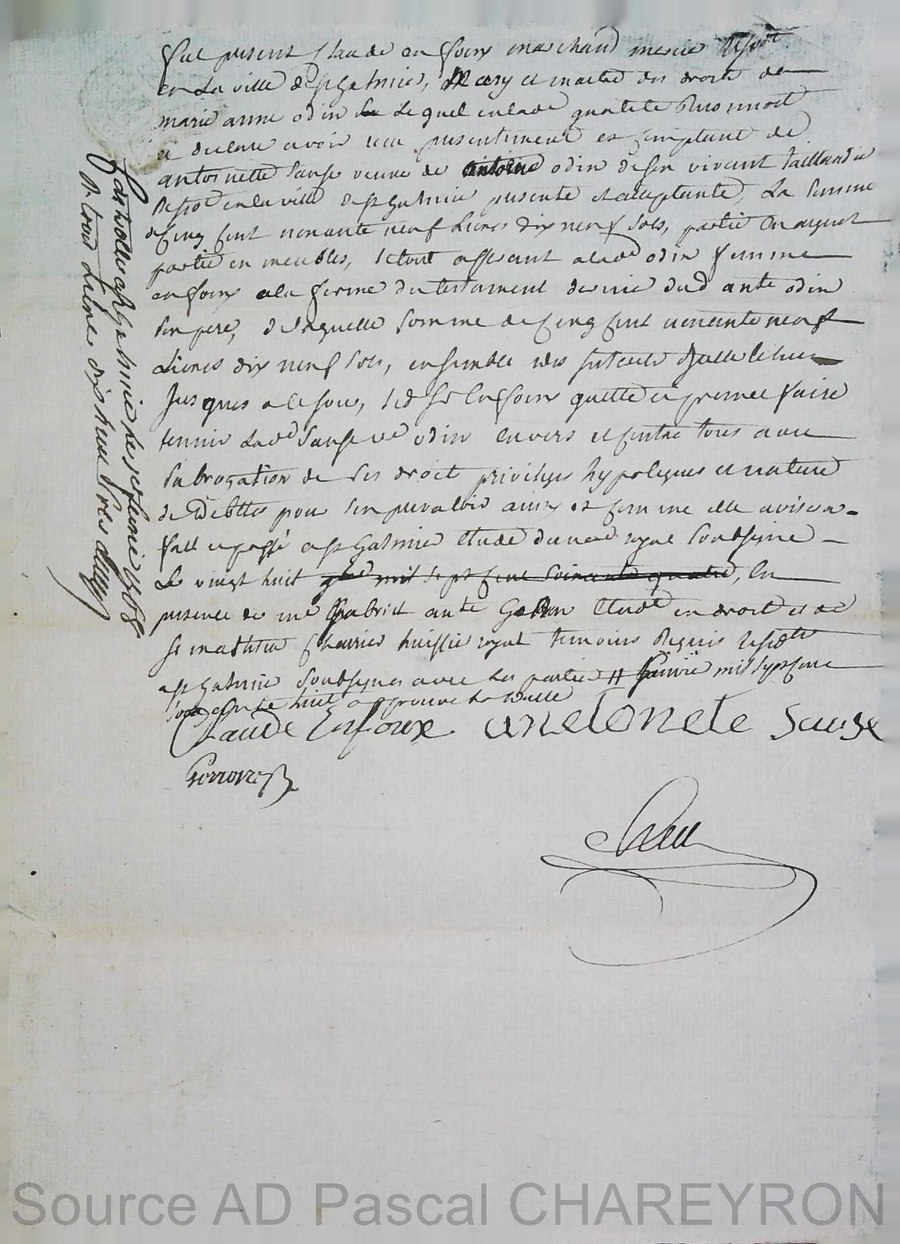 fut présent Claude enfoux marchand mercier
en la ville de st galmier, mary et maitre des droits de
marie anne odin lequel en lade qualité reconnoit
et declare avoir reçu présentement et comptant de
antoinette Sauze veuve de antoine odin de son vivant taillandier
en la ville de st galmier présente et acceptante, La somme
de cinq cent nonante neuf Livres dix neuf sols, partie en argent
partie en meubles, le tout afferant a lade odin femme
enfoux a la forme du testament dud ante odin
son pere, de laquelle somme de cinq cent nonante neuf
Livres dix neuf sols, ensemble des
Jusques a ce jour, led Sr Enfoux quitte et promet faire
tenir lade Sauze ve odin envers et contre tous avec
subrogation de ses droit privileges hypoteques et nature
de debttes pour s'en prevaloir ainsy et comme elle avisera
fait et passé a st Galmier Etude du nore royal soubsigné
Le vingt huit mil sept cent soixante quatre, En
présence de me ante en droit et de
Sr mathieu Charrier huissier royal temoins requis
a st galmier soubsignés avec les parties # janvier mil sept cent
soixante huit approuvé
Claude Enfoux anetonete Sauze
Controllé a st Galmier le 1768
trois Livres dix huit sols
Source AD Pascal CHAREYRON